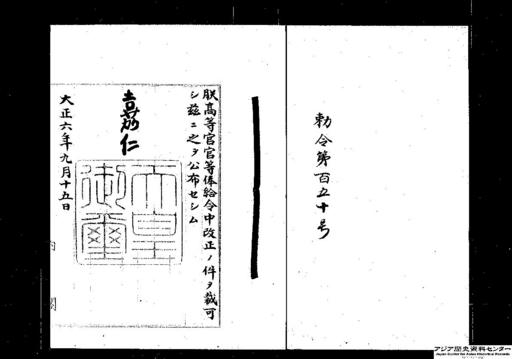 勅令第百五十号
朕高等官官等俸給令中改正ノ件ヲ裁可
シ茲ニ之ヲ公布セシム
嘉仁
天皇
御璽
大正六年九月十五日
内閣
アジア歴史資料センター
Japan Center for Asian Historical Records